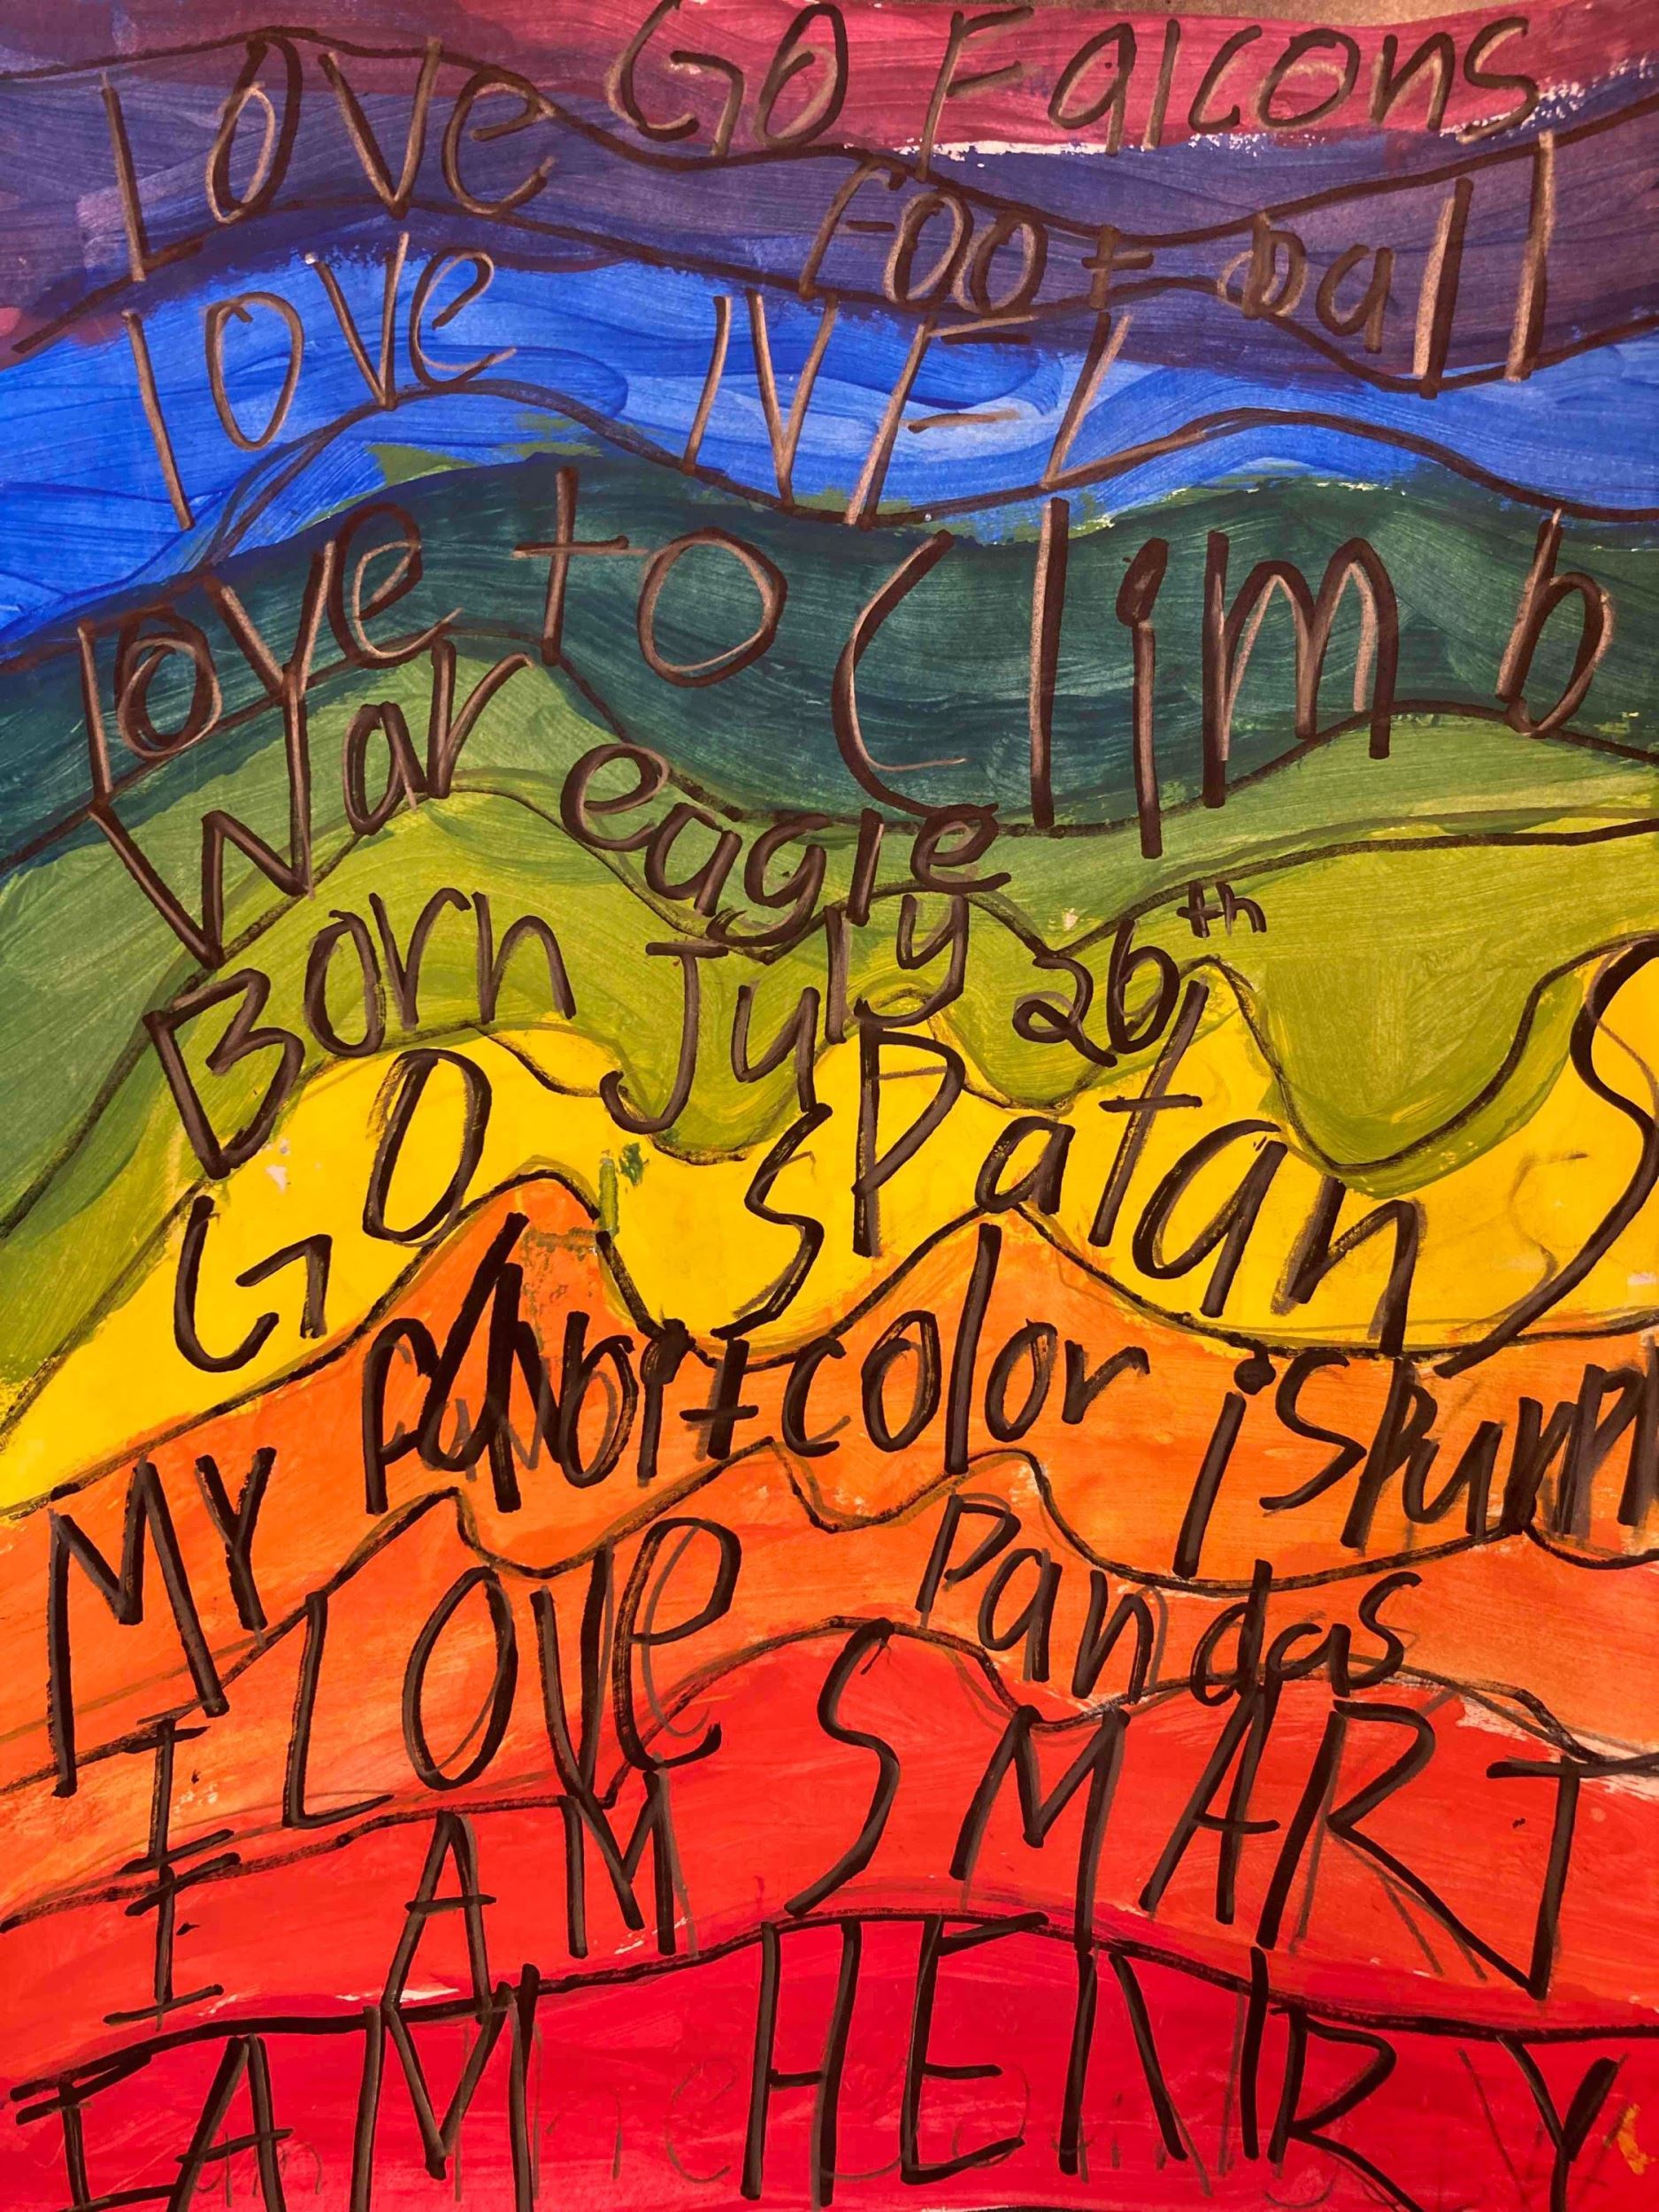 GO Falcons
love football
love NFL
love to Climb
War eagle
Born July 26th
GO sPatanS
MY color is Purpl
I LOVe Pandas
I AM SMART
I AM HENRY